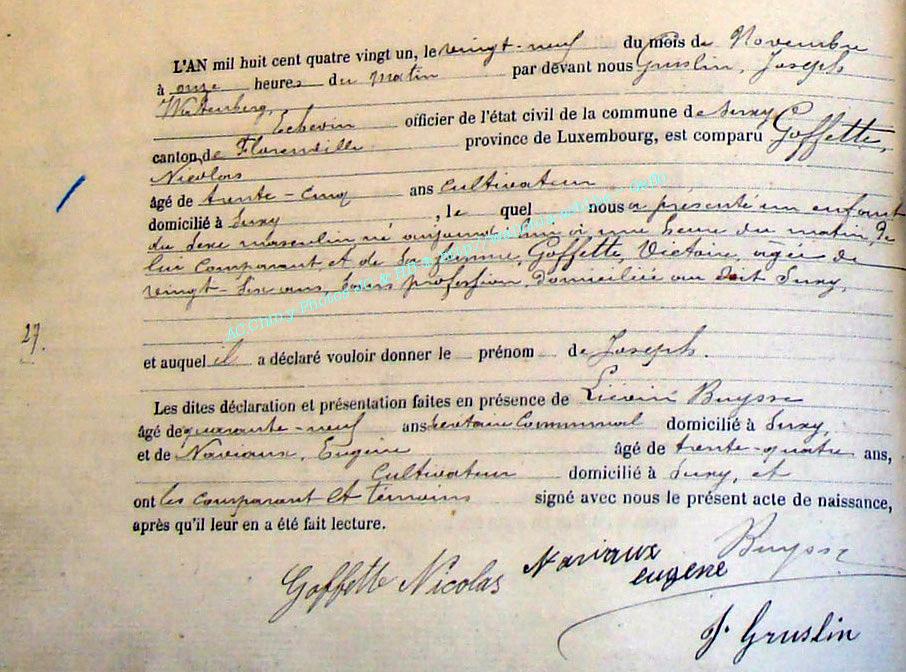 L'AN mil huit cent quatre vingt un, le vingt-neuf du mois de Novembre
à onze heures du matin par devant nous Gruslin, Joseph
Echevin officier de l'état civil de la commune de Suxy
canton de Florenville province de Luxembourg, est comparu Goffette,
Nicolas
âgé de trente-cinq ans cultivateur
domicilié à Suxy, lequel nous a présenté un enfant
du sexe masculin, né aujourd'hui à une heure du matin, de
lui comparant et de sa femme, Goffette, Victoire, agée de
vingt-six ans, sans profession, domiciliée au dit Suxy,
27.
et auquel il a déclaré vouloir donner le prénom de Joseph.
Les dites déclaration et présentation faites en présence de Buysse
âgé de quarante-neuf ans secrétaire Communal domicilié à Suxy,
et de Naviaux, Eugène âgé de trente-quatre ans,
Cultivateur domicilié à Suxy, et
ont les comparant et témoins signé avec nous le présent acte de naissance,
après qu'il leur en a été fait lecture.
Goffette Nicolas Naviaux eugene Buysse
J. Gruslin